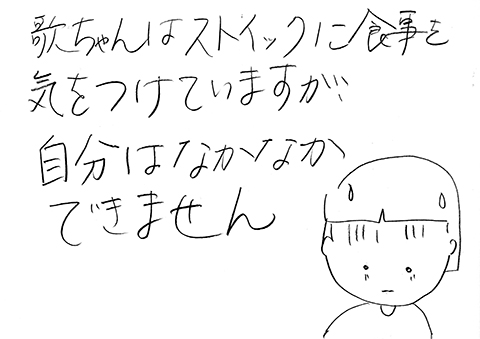 歌ちゃんはストイックに食事を
気をつけていますが、
自分はなかなか
できません